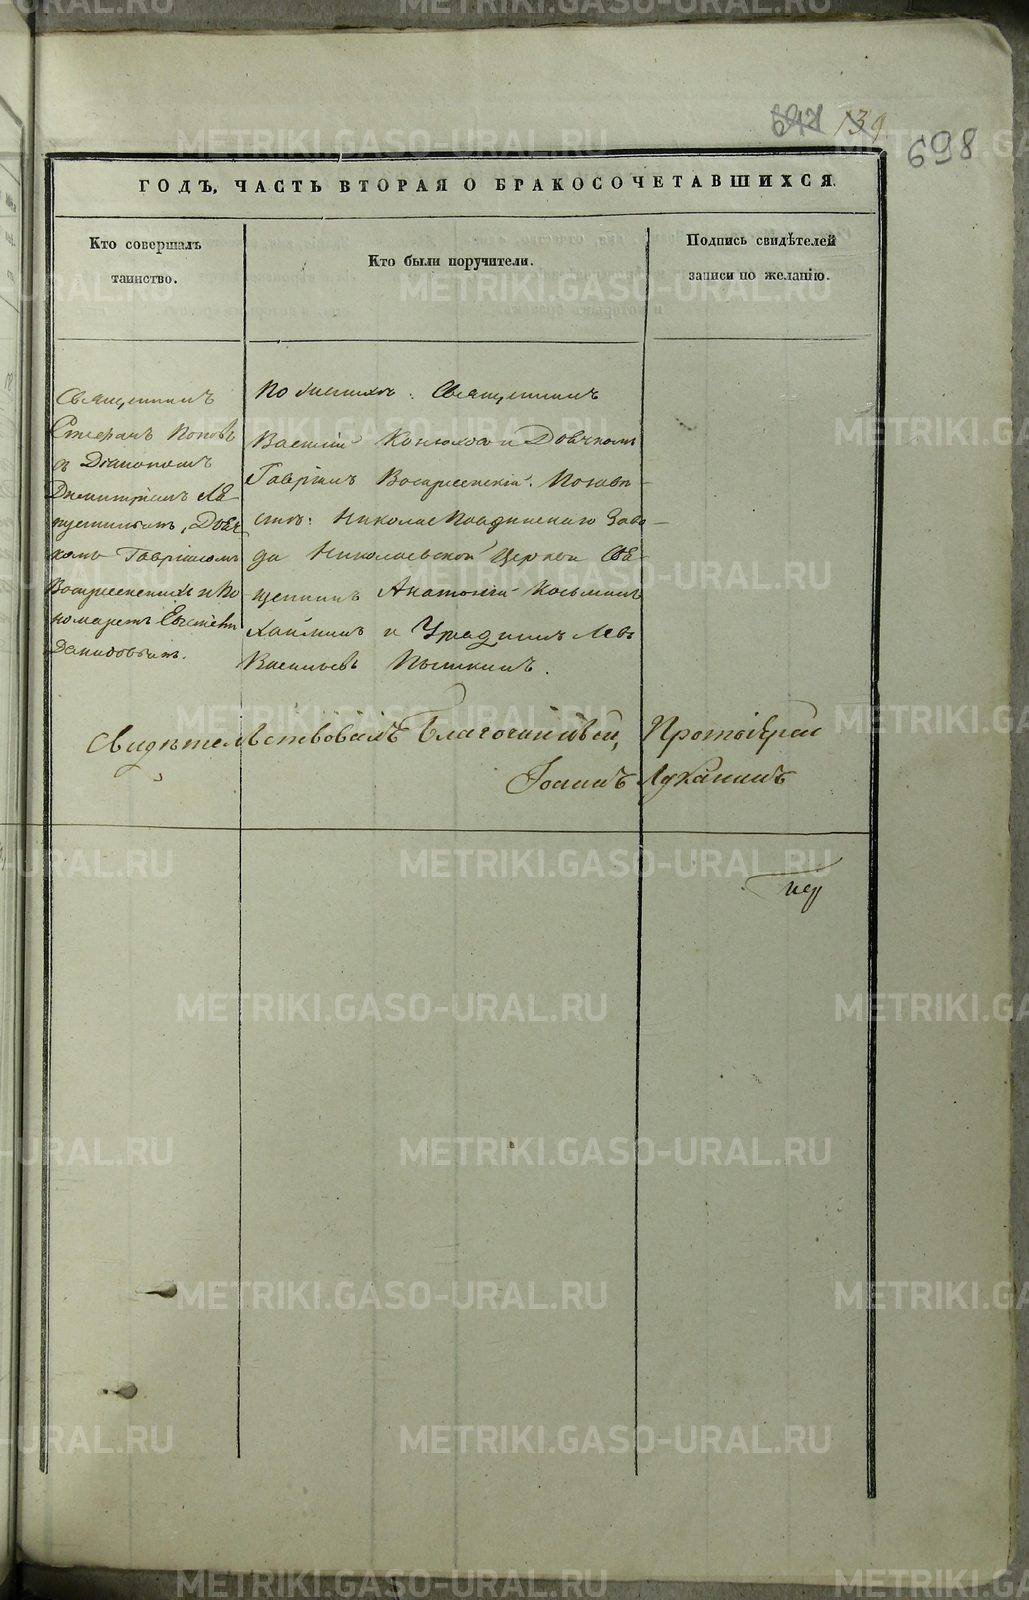 139
698
ГОДЪ, ЧАСТЬ ВТОРАЯ О БРАКОСОЧЕТАВШИХСЯ.
Кто совершалъ
таинство.
Кто были поручители.
Подпись свидѣтелей
записи по желанію.
Священникъ
Стефанъ Поповъ
съ Діакономъ
Димитріемъ
Дьяч
комъ Гавріиломъ
Воскресенскимъ и По
номаремъ
Давидовымъ.
По женихѣ: Священникъ
Василій Конюхов и Дьячекъ
Гавріилъ Воскресенскій. По невѣ
стѣ: Николае Павдинскаго Заво
да Николаевской Церкви Свя
щенникъ Косьминъ
и Урядникъ Левъ
Васильевъ Пышкинъ.
Свидѣтельствовалъ Благочинный, Протоіерей
Іоаннъ Луканинъ
METRIKI.GASO-URAL.RU